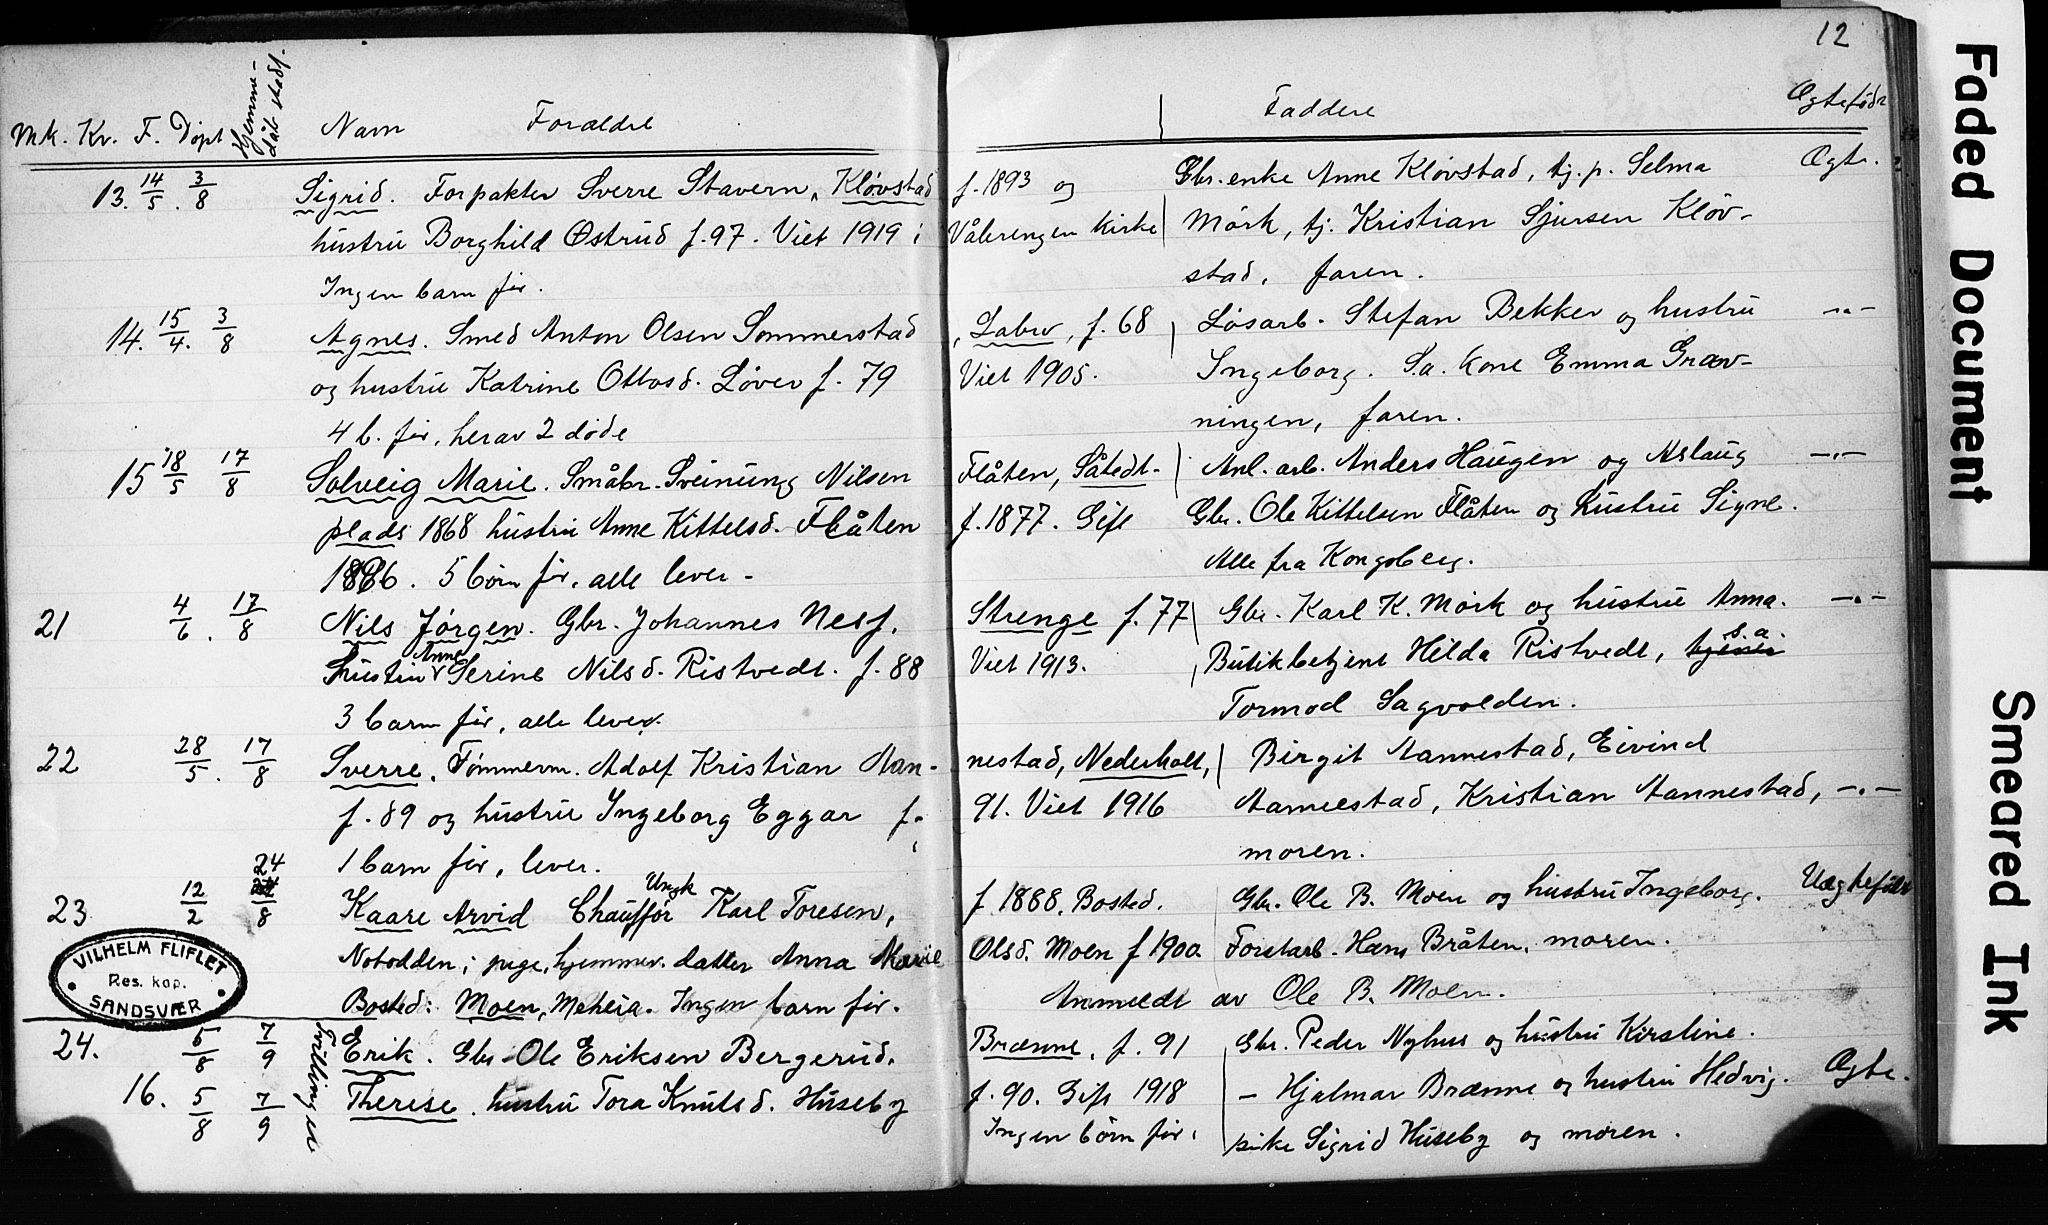 12
Mk. Kv. F. Døpt Hjemme-
dåb stadf. Navn Forældre Faddere Ægtefødt
13. 14/5. 3/8 Sigrid. Forpakter Sverre Stavern, Kløvstad f. 1893 og Gbr. enke Anne Kløvstad, tj. p. Selma Ægte.
hustru Borghild Østrud f. 97. Viet 1919 i Vålerengen kirke Mörk, tj. Kristian Sjursen Kløv-
Ingen barn før. stad, faren.
14. 15/4. 3/8 Agnes. Smed Anton Olsen Sommerstad, Labro, f. 68 Løsarb. Stefan Bekker og hustru -"-
og hustru Katrine Ottosd. Løver f. 79 Viet 1905. Ingeborg. S.a. kone Emma Græv-
4 b. før, herav 2 døde ningen, faren.
15 18/5 17/8 Solveig Marie. Småbr. Sveinung Nilsen Flåten, Såtedt- Anl. arb. Anders Haugen og Aslaug -"-
plads 1868 hustru Anne Kittelsd. Flåten f. 1877. Gift Gbr. Ole Kittelsen Flåten og hustru Signe.
1886. 5 børn før, alle lever. Alle fra Kongsberg.
21 4/6. 17/8 Nils Jørgen. Gbr. Johannes Nesf. Strenge f. 77 Gbr. Karl K. Mörk og hustru Anna. -"-
hustru Anne Serine Nilsd. Ristvedt. f. 88 Viet 1913. Butikbetjent Hilda Ristvedt, tjener s.a.
3 barn før, alle lever. Tormod Sagvolden.
22 28/5. 17/8 Sverre, Tømmerm. Adolf Kristian Aannestad, Nederholt, Birgit Aannestad, Eivind
f. 89 og hustru Ingeborg Eggar f. 91. Viet 1916 Aannestad, Kristian Aannestad, -"-
1 barn før, lever. moren.
23 12/2 24/8 Kaare Arvid Chauffør Ungk Karl Toresen, f. 1888. Bosted. Gbr. Ole B. Moen og hustru Ingeborg. Uægtefødt
Notodden; pige, hjemmev. datter Anna Marie Olsd. Moen f 1900 Forstarb. Hans Bråten, moren.
Bosted: Moen, Meheia. Ingen barn før. Anmeldt av Ole B. Moen.
VILHELM FLIFLET
Res. kap.
SANDSVÆR
24. 5/8 7/9 Tvillinger Erik. Gbr. Ole Eriksen Bergerud, Brænne, f. 91 Gbr. Peder Nyhus og hustru Kirstine.
16. 5/8 7/9 Therese. hustru Tora Knutsd. Huseby f. 90. Gift 1918 - Hjalmar Brænne og hustru Hedvig. Ægte.
Ingen børn før. pike Sigrid Huseby og moren.
Faded Document
Smeared Ink